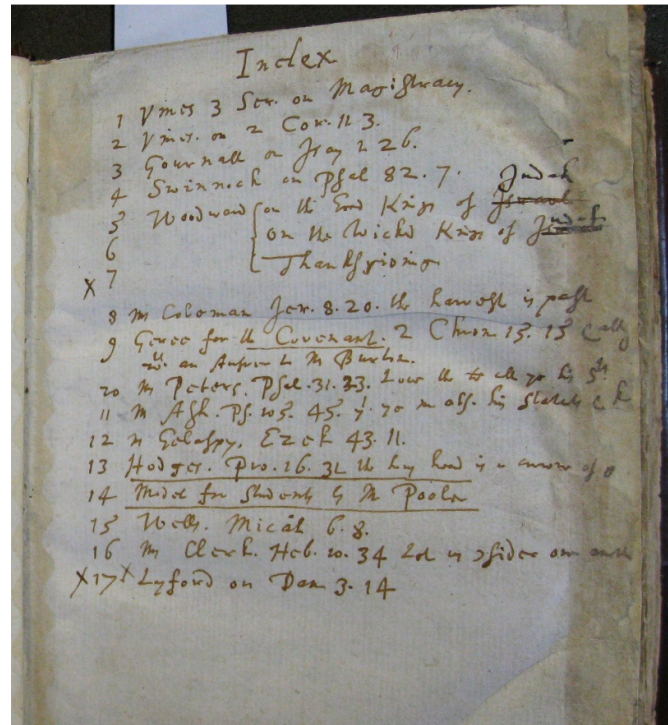 Index
1 Vines 3 Ser. on Magistracy.
2 Vines. on 2 Cor. 11 3.
3 Gournall on Isay 1 26.
4 Swinnock on Psal 82. 7. Judah
5 Woodward on the Good Kings of Israel
6 on the Wicked Kings of Judah
x 7 Thanksgiving
8 Mr Coleman Jer. 8. 20. the harvest is past
9 Geree for the Covenant. 2 Chron 15. 15
wth an Answer to Mr Burton.
10 Mr Peters. Psal. 31. 23. Love the all ye his Sts
11 Mr Ash. Ps. 105. 45. yt ye m obs. his statutes
12 Mr Gelaspy. Ezek 43. 11.
13 Hodges. Pro. 16. 31 the hoy head is a crowne of
14 Model for Students by Mr Poole
15 Wells. Micah 6. 8.
16 Mr Clerk. Heb. 10. 34 Let us one
x 17 x Lyford on Dan 3. 14